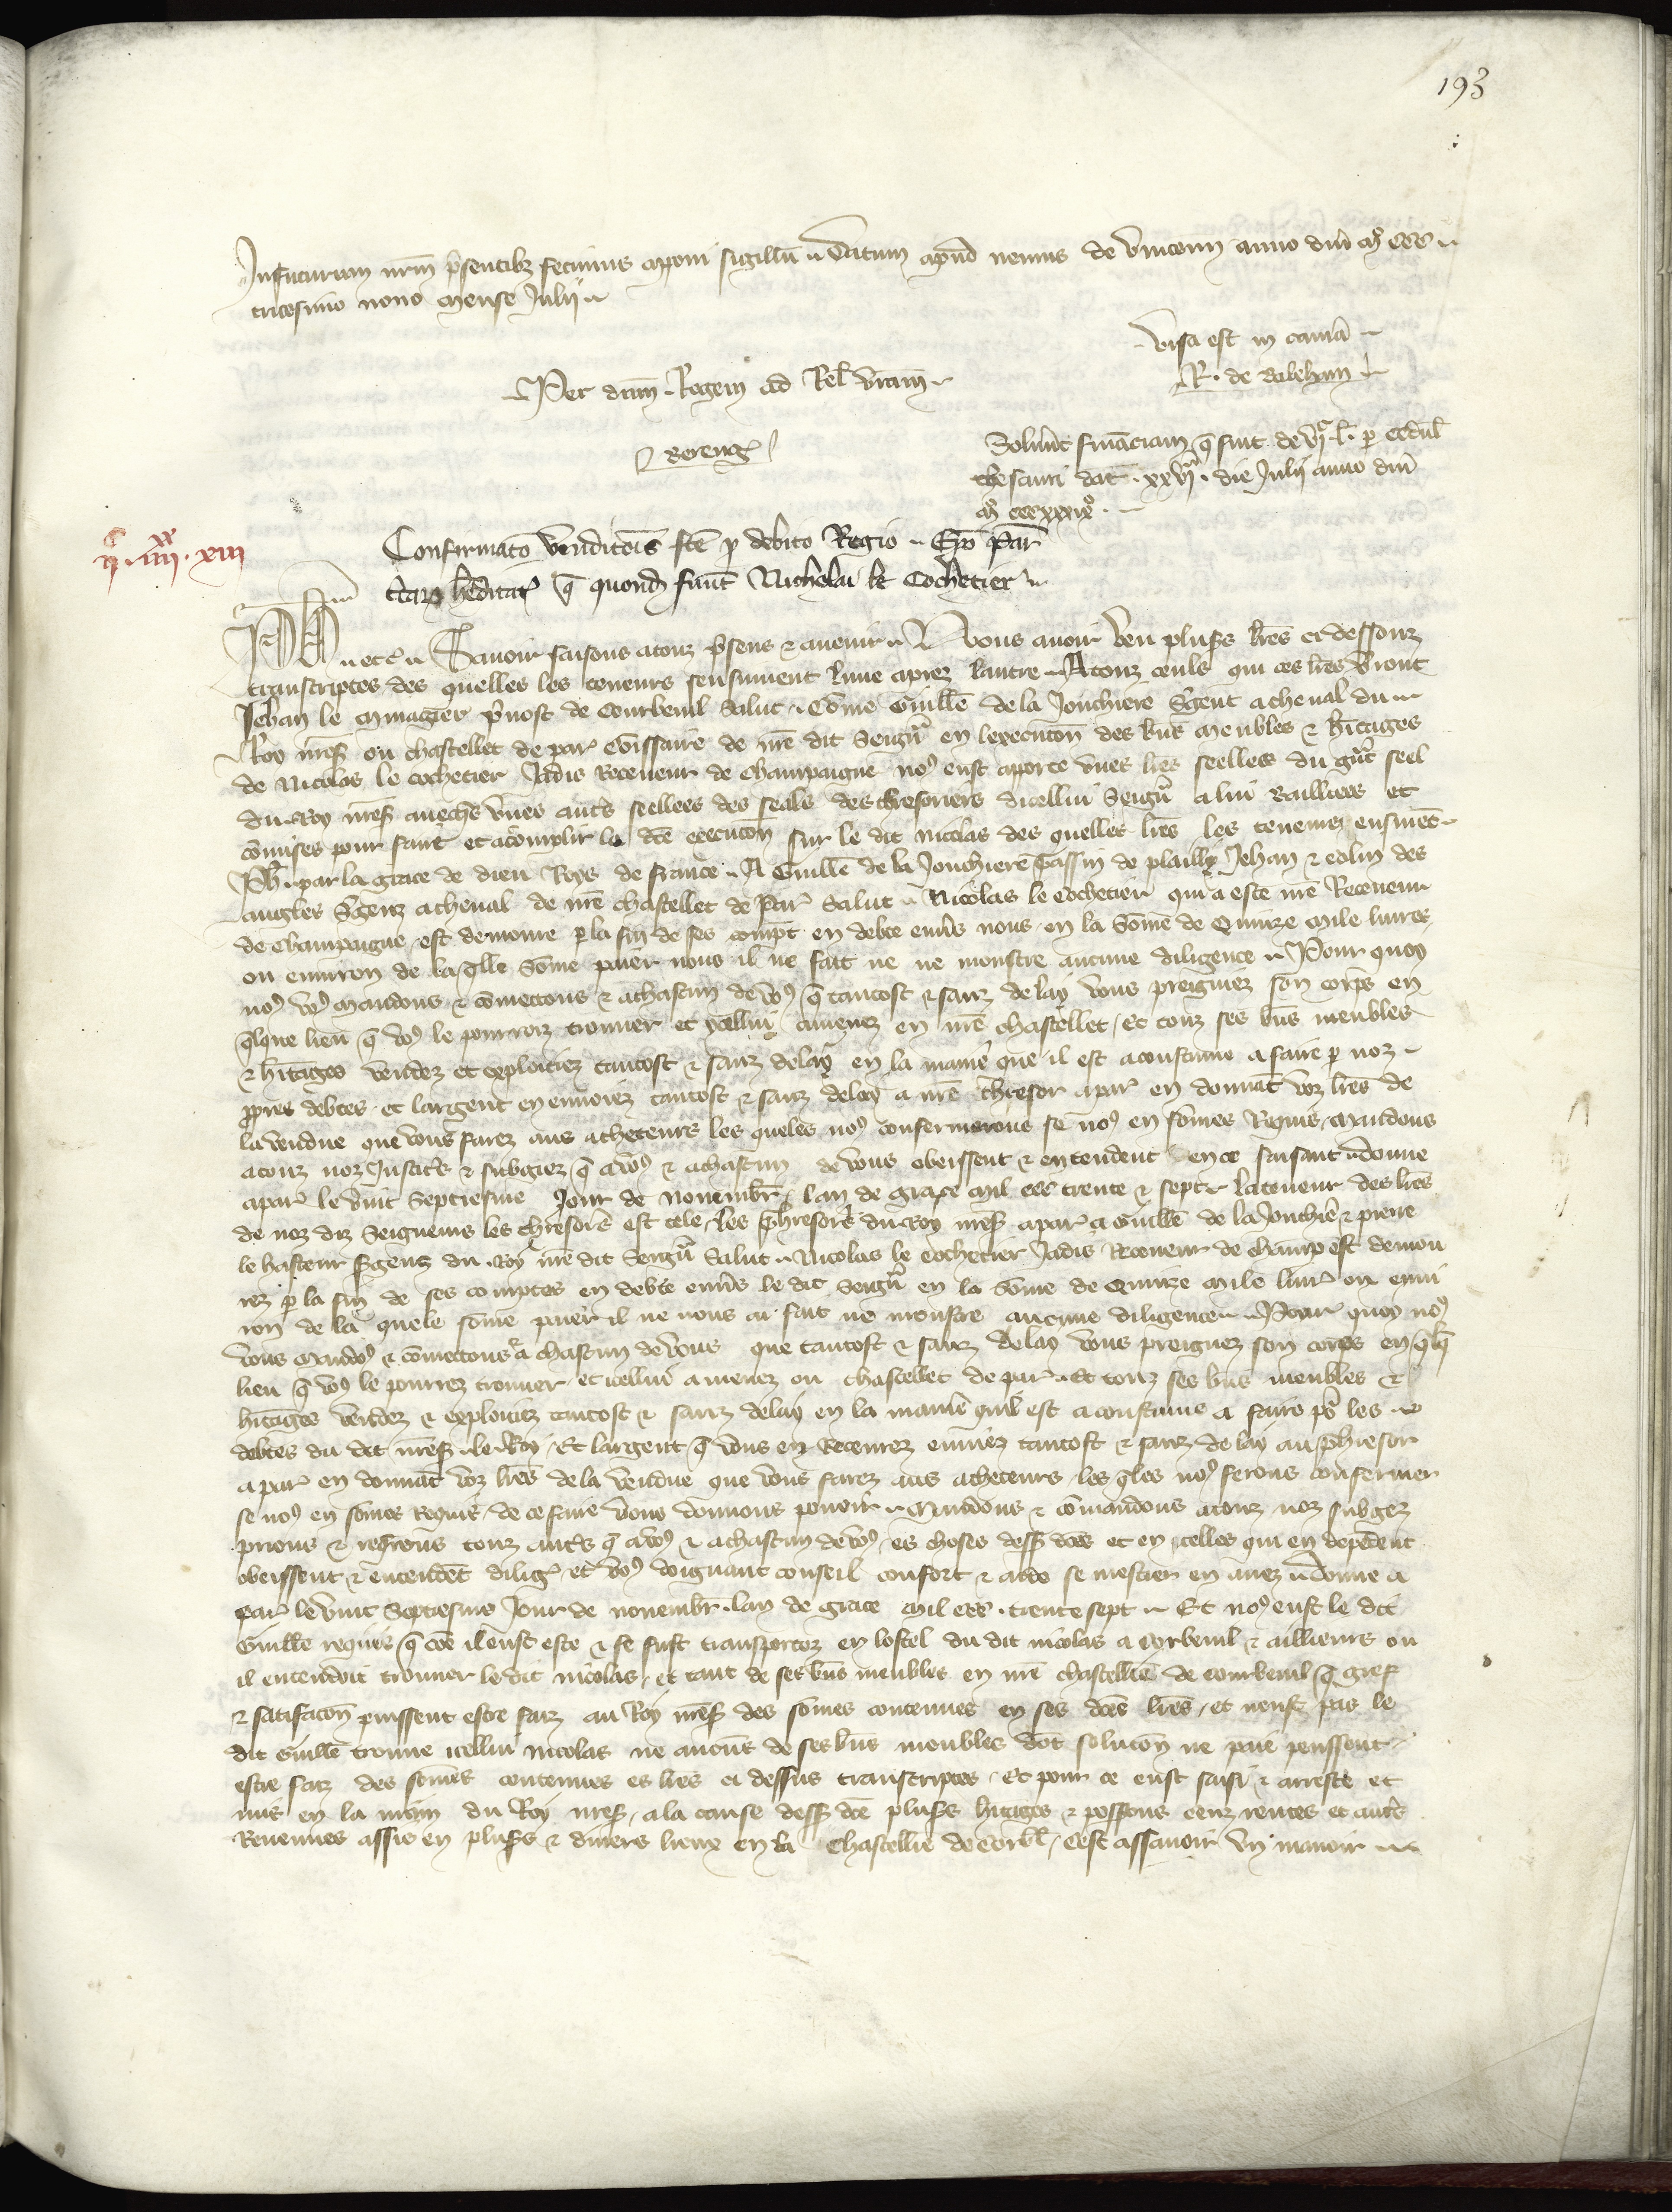 193
In futurum nrm psentibz fecimus apponi sigillu Datum apud nemus de vincenn anno dni m ccc
tricesimo nono mense Julii
Visa est in cama
R. de
Per dnm Regem ad Rel vram
Bereng
Solunt financiam q fuit de l. p cedul
thesauri dat xxvii die Julii anno dni
m cccxxxix
Confirmato venditois fce p debito Regio Epo Par
ii iiii xiii
terar hereditar q quond fuert Nicholai le Cochetier
Ph etc Savoir faisons a touz psens & avenir Nous avoir veu plusrs lres ci dessouz
transcriptes des quelles les teneurs sensuivent lune aprez lautre A touz ceuls qui ces lres vront
Jehan le pvost de Courbeuil Salut Come Guille de la Jonchiere Sgent a cheval du
Roy nre s ou chastellet de par Comissaire de nre dit Seigr en lexecucon des biens meubles & hitages
de Nicolas le cochetier Jadis Receveur de Champaigne nos eust aporte unes lres seellees du grt seel
du Roy nre s avecques unes autrs seellees des seals des thresoriers dicellui Seigr a lui Bailliees et
comises pour faire et acomplir la dce execucon sur le dit nicolas des quelles lres les teneurs ensuivet
Ph par la grace de dieu Roys de france A Guille de la Jonchiere Tassin de plailly Jehan & colin des
angles Sgenz a cheval de nre chastellet de Par Salut Nicolas le Cochetier qui a este nre Receveur
de Champaigne est demoure p la fin de ses compt en debte envrs nous en la Some de Quinze mile livres
ou environ de laqlle Some paier nous il ne fait ne ne monstre aucune diligence Pour quoy
nos vos mandons & comettons & a chascun de vos q tantost & sanz delay vous preigniez son corps en
qlque lieu q vos le pourroiz trouver et ycellui amenez en nre chastellet Et touz ses biens meubles
& hitages vendez et exploitiez tantost & sanz delay en la maniere que il est acoustume a faire p noz
ppres debtes et largent en envoiez tantost & sanz delay a nre thresor a par en donnat voz lres de
la vendue que vous farez aus acheteurs les queles nos confermerons se nos en somes Requis Mandons
a touz noz Justicrs & subgiez q a vos & a chascun de vous obeissent & entendent en ce faisant donne
a par le vint Septiesme Jour de novembr lan de grace mil ccc trente & sept La teneur des lres
de noz diz Seigneurs les thresors est tele Les thresors du Roy nre s a par a Guille de la Jonchie & pierre
le hasteur Sgenz du Roy nre dit Seigr Salut Nicolas le cochetier Jadis Receveur de champ est demou
rez p la fin de ses comptes en debte envrs le dit Seigr en la Some de Quinze mile livr ou envi
ron de la quele some paier il ne nous a fait ne monstre aucune diligence Pour quoy nos
vous mandos & comettons a chascun de vous que tantost & sanz delay vous preignez son corps en qlq
lieu q vos le pourrez trouver et icellui amenez ou chastellet de par Et touz ses biens meubles &
hitages vendez & exploitiez tantost & sanz delay en la maniere quil est acoustume a faire por les
debtes du dit nre s le Roy Et largent q vous en Recevrez envoiez tantost & sanz delay au thresor
a par en donnat voz lres de la vendue que vous farez aus acheteurs les qles nos ferons confermer
se nos en somes Requis de ce faire vous donnons povoir Mandons & comandons a touz noz subgez
prions & reqrons touz autrs q a vos & a chascun de vos es choses dess dces et en celles qui en depedent
obeissent & entendet dilig et vos doignent conseil confort & aide se mestier en avez donne a
par le vint Septiesme Jour de novembr lan de grace mil ccc trente sept Et nos eust le dit
Guille requis q come il eust este & se fust transportez en lostel du dit nicolas a corbeuil & aillieurs ou
il entendoit trouver le dit nicolas et tant de ses biens meubles en nre chastellie de courbeuil q gre
& satifacon puissent estre faiz au Roy nre s des somes contenues en ses dces lres et neust pas le
dit Guille trouve icellui nicolas ne aucuns de ses biens meubles dot solucon ne paie peussent
estre faiz des somes contenues es lres ci dessus transcriptes Et pour ce eust saisi & arreste et
mis en la main du Roy nre s a la cause dess dce plusrs hitages & possions cenz rentes et autrs
Revenues assis en plusrs & divers lieux en la Chastellie de Corbl Cest assavoir un manoir